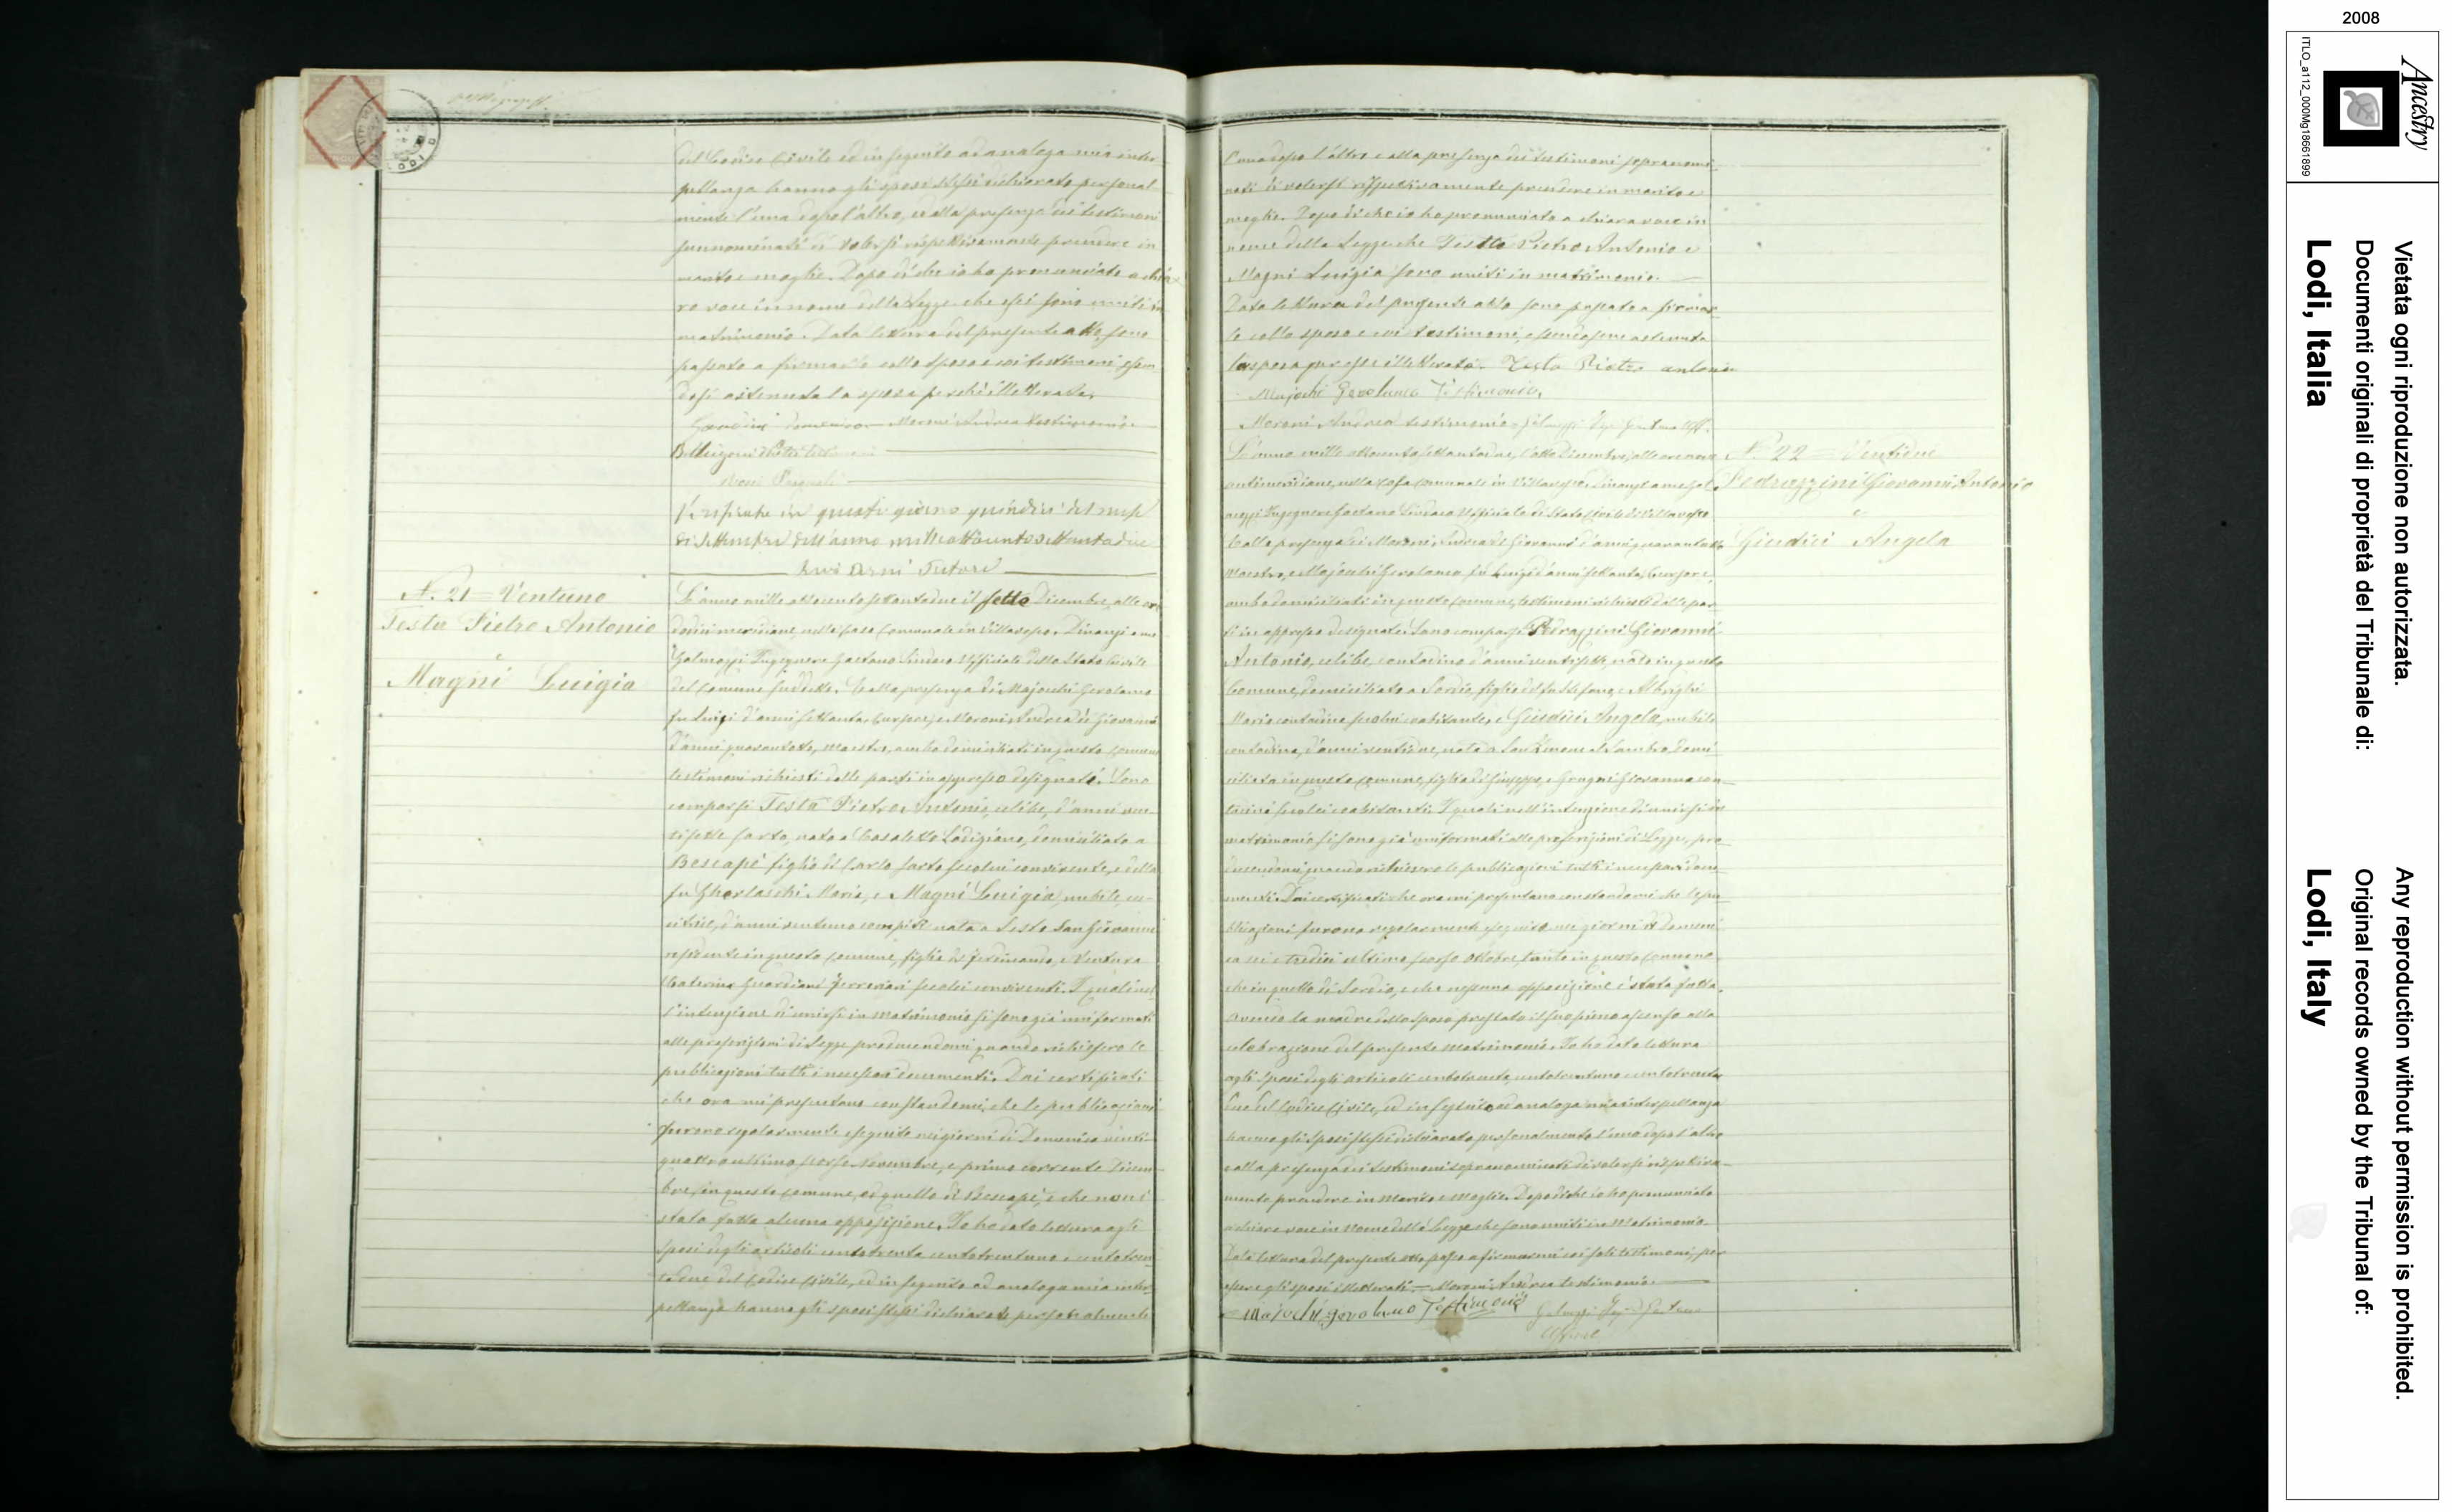 del Codice Civile ed in seguito ad analoga mia inter-
pellanza hanno gli sposi stessi dichiarato personal-
mente l'uno dopo l'altro, ed alla presenza dei testimoni
sunnominati di volersi rispettivamente prendere in
marito e moglie. Dopo di che io ho pronunciato a chia-
ra voce in nome della Legge che essi sono uniti in
matrimonio. Data lettura del presente atto, sono
passato a firmarlo collo sposo e coi testimoni essen-
dosi astenuta la sposa perchè illetterata.
domenico — Moroni Andrea testimonio
Verificato in questo giorno quindici del mese
di settembre dell'anno mille ottocento settanta due
N. 21 = Ventuno
Testa Pietro Antonio
e
Magni Luigia
L'anno mille ottocento settantadue il sette Dicembre, alle ore
dodici meridiane, nella Casa Comunale in Villavesco. Dinanzi a me
Galmozzi Ingegnere Gaetano Sindaco Ufficiale dello Stato Civile
del Comune suddetto. Ed alla presenza di Majocchi Gerolamo
fu Luigi d'anni settanta, Cursore, e Moroni Andrea di Giovanni
d'anni quarantotto, Maestro, ambo domiciliati in questo Comune
testimoni richiesti dalle parti in appresso designate. Sono
comparsi Testa Pietro Antonio, celibe, d'anni ven-
tisette sarto, nato a Casaletto Lodigiano, domiciliato a
Bescapè figlio di Carlo sarto secolui convivente, e della
fu Maria, e Magni Luigia, nubile, cu-
citrice, d'anni ventuno compiti nata a Sesto San Giovanni
residente in questo Comune, figlia di Ferdinando, e Ventura
Caterina secolei conviventi. I quali nel
l'intenzione di unirsi in matrimonio si sono già uniformati
alle prescrizioni di Legge producendomi quando richiesero le
pubblicazioni tutti i necessari documenti. Dai certificati
che ora mi presentano constandomi, che le pubblicazioni
furono regolarmente eseguite nei giorni di Domenica venti-
quattro ultimo scorso Novembre, e primo corrente Dicem-
bre, in questo Comune, ed quello di Bescapè, e che non è
stata fatta alcuna opposizione. Io ho dato lettura agli
Sposi degli articoli centotrenta centotrentuno e centotren-
tadue del Codice Civile, ed in seguito ad analoga mia inter-
pellanza hanno gli sposi stessi dichiarato personalmente
l'uno dopo l'altro e alla presenza dei testimoni sopranomi-
nati di volersi rispettivamente prendere in marito e
moglie. Dopo di che io ho pronunciato a chiara voce in
nome della Legge che Testa Pietro Antonio e
Magni Luigia sono uniti in matrimonio.
Data lettura del presente atto sono passato a firmar-
lo collo sposo e coi testimoni, essendosene astenuta
la sposa per essere illetterata. Testa Pietro antonio
Majochi Gerolamo Testimonio
Moroni Andrea testimonio
L'anno mille ottocento settantadue, l'otto Dicembre, alle ore nove
antimeridiane, nella Casa Comunale in Villavesco. Dinanzi a me Gal-
mozzi Ingegnere Gaetano Sindaco Ufficiale di Stato Civile di Villavesco
Ed alla presenza dei Moroni Andrea di Giovanni d'anni quarantotto
Maestro, e Majocchi Gerolamo fu Luigi d'anni settanta, Cursore,
ambo domiciliati in questo Comune, testimoni richiesti dalle par-
ti in appresso designate. Sono comparsi Pedrazzini Giovanni
Antonio, celibe, contadino d'anni ventisette, nato in questo
Comune, domiciliato a Sordio, figlio del fu Stefano, e Albrighi
Maria contadina secolui coabitante, e Giudici Angela, nubile
contadina, d'anni ventidue, nata a San Zenone al Lambro, domi-
ciliata in questo Comune, figlia di Giuseppe, e Grugni Giovanna con-
tadini secolei coabitanti. I quali nell'intenzione di unirsi in
matrimonio si sono già uniformati alle prescrizioni di Legge, pro-
ducendomi quando richiesero le pubblicazioni tutti i necessari docu-
menti. Dai certificati che ora mi presentano constandomi che le pu-
blicazioni furono regolarmente eseguite nei giorni di Domeni-
ca sei e tredici ultimo scorso Ottobre, tanto in questo Comune
che in quello di Sordio, e che nessuna opposizione è stata fatta,
avendo la madre dello sposo prestato il suo pieno assenso alla
celebrazione del presente Matrimonio. Io ho dato lettura
agli Sposi degli articoli centotrenta, centotrentuno e centotrenta-
due del Codice Civile, ed in seguito ad analoga mia interpellanza
hanno gli sposi stessi dichiarato personalmente l'uno dopo l'altro
e alla presenza dei testimoni sopranominati di volersi rispettiva-
mente prendere in Marito e Moglie. Dopo di che io ho pronunciato
a chiara voce in Nome della Legge che sono uniti in Matrimonio
Data lettura del presente atto passo a firmarmi coi soli testimoni, per
essere gli sposi illetterati — Moroni Andrea testimonio
Majochi gerolamo Testimonio
N. 22 = Ventidue
Pedrazzini Giovanni Antonio
e
Giudici Angela
2008
Ancestry
ITLO_a112_000Mg18661899
Vietata ogni riproduzione non autorizzata.
Documenti originali di proprietà del Tribunale di:
Lodi, Italia
Any reproduction without permission is prohibited.
Original records owned by the Tribunal of:
Lodi, Italy